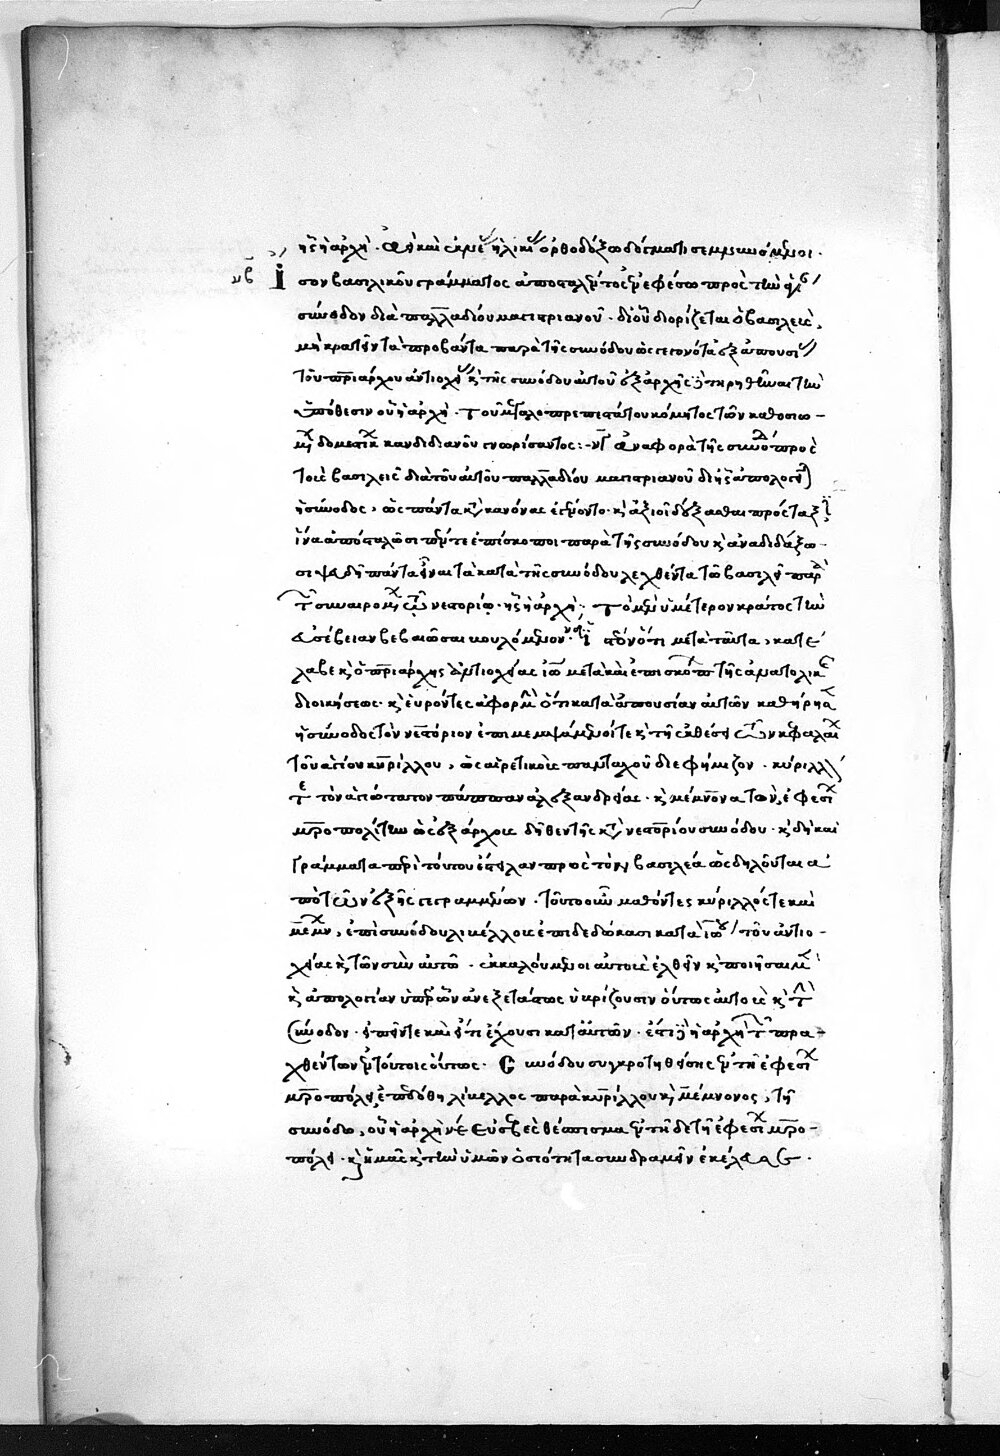 ἧς ἡ ἀρχή· ἀεὶ καὶ ὀρθοδόξω δόγματι σεμνυνόμενοι·
νβ Ἴσον βασιλικοῦ γράμματος ἀποσταλέντος ἐν ἐφέσω πρὸς τὴν ἁγίαν
σύνοδον διὰ παλλαδίου μαγιστριανοῦ· δι' οὗ διορίζεται ὁ βασιλεὺς,
μὴ κρατεῖν τὰ προβάντα παρὰ τῆς συνόδου ὡς γεγονότα ἐξ ἀπουσίας
τοῦ πριάρχου ἀντιοχείας κ τῆς συνόδου αὐτοῦ ἐξ ἀρχῆς τηρηθῆναι τὴν
ὑπόθεσιν οὗ ἡ ἀρχή· τοῦ μεγαλοπρεπεστάτου κόμητος τῶν καθοσιω-
μένων δομεστικῶν κανδιδιανοῦ γνωρίσαντος:- νγ ἀναφορὰ τῆς συνόδου πρὸς
τοὺς βασιλεῖς διὰ τοῦ αὐτοῦ παλλαδίου μαγιστριανοῦ δι' ἧς ἀπολογεῖται
ἡ σύνοδος, ὡς πάντα κατὰ κανόνας ἐγένοντο· κ ἀξιοῖ δέξασθαι πρὸς
ἵνα ἀποσταλῶσι πέντε ἐπίσκοποι παρὰ τῆς συνόδου κ ἀναδιδάξω-
σι ψευδῆ πάντα εἶναι τὰ κατὰ τῆς συνόδου λεχθέντα τῶ βασιλεῖ παρὰ
τῶν συναιρομένων νεστορίω· ἧς ἡ ἀρχή· τὸ μὲν ὑμέτερον κράτος τὴν
εὐσέβειαν βεβαιῶσαι βουλόμενον· ἰστέον ὅτι μετὰ ταῦτα, κατέ-
λαβε κ ὁ πριάρχης ἀντιοχείας ἰω μετὰ καὶ ἐπισκόπων τῆς ἀνατολικῆς
διοικήσεως· κ εὑρόντες ἀφορμὴν ὅτι κατὰ ἀπουσίαν αὐτῶν καθήρηκεν
ἡ σύνοδος τὸν νεστόριον ἐπιμεμψάμενοί τε κ τῆ ἐκθέσει τῶν κεφαλαίων
τοῦ ἁγίου κυρίλλου, ὡς αἱρετικοὺς πανταχοῦ διεφήμιζον· κύριλλόν
τε τὸν ἁγιώτατον πάππαν ἀλεξανδρείας· κ μέμνονα τῶν ἐφεσίων
μροπολίτην ὡς ἐξάρχους δῆθεν τῆς κατὰ νεστορίου συνόδου· κ δὴ καὶ
γράμματα περὶ τούτου ἔστειλαν πρὸς τὸν βασιλέα ὡς δηλοῦται ἀ-
πὸ τῶν ἑξῆς γεγραμμένων· τοῦτο οὖν μαθόντες κύριλλός τε καὶ
μέμνων, ἐπὶ συνόδου λιβέλλους ἐπιδεδώκασι κατὰ ἰω τοῦ ἀντιο-
χείας κ τῶν σὺν αὐτῶ· ἐκκαλούμενοι αὐτοὺς ἐλθεῖν κ ποιήσασθαι
κ ἀπολογίαν ὑπὲρ ὧν ἀνεξετάστως ὑβρίζουσιν οὕτως αὐτοὺς κ τὴν
σύνοδον· εἰπεῖν τε καὶ εἴ τι ἔχουσι κατ' αὐτῶν· ἔστι δὲ ἡ ἀρχὴ τῶν πρα-
χθέντων ἐν τούτοις οὕτως· Συνόδου συγκροτηθείσης ἐν τῆ ἐφεσίων
μροπόλει, ἐπεδόθη λίβελλος παρὰ κυρίλλου κ μέμνονος, τῆ
συνόδω, οὗ ἡ ἀρχὴ νε εὐσεβὲς θέσπισμα ἐν τῆδε τῆ ἐφεσίων μρο-
πόλει· κ ἡμᾶς κ τὴν ὑμῶν ὁσιότητα συνδραμεῖν ἐκέλευσε·